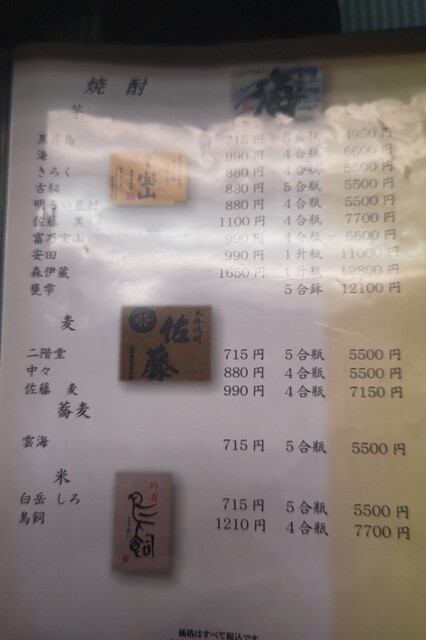 焼酎
海
芋
黒霧島 715円 5合瓶 4950円
海 990円 4合瓶 6600円
きろく 880円 4合瓶 5500円
古秘 830円 5合瓶 5500円
明るい農村 880円 4合瓶 5500円
佐藤 黒 1100円 4合瓶 7700円
富乃宝山 990円 4合瓶 6600円
安田 990円 1升瓶 11000円
森伊蔵 1650円 1升瓶 19800円
甕雫 5合 12100円
宝山
麦
二階堂 715円 5合瓶 5500円
中々 880円 4合瓶 5500円
佐藤 麦 990円 4合瓶 7150円
佐藤
蕎麦
雲海 715円 5合瓶 5500円
米
白岳 しろ 715円 5合瓶 5500円
鳥飼 1210円 4合瓶 7700円
吟香
鳥飼
価格はすべて税込です